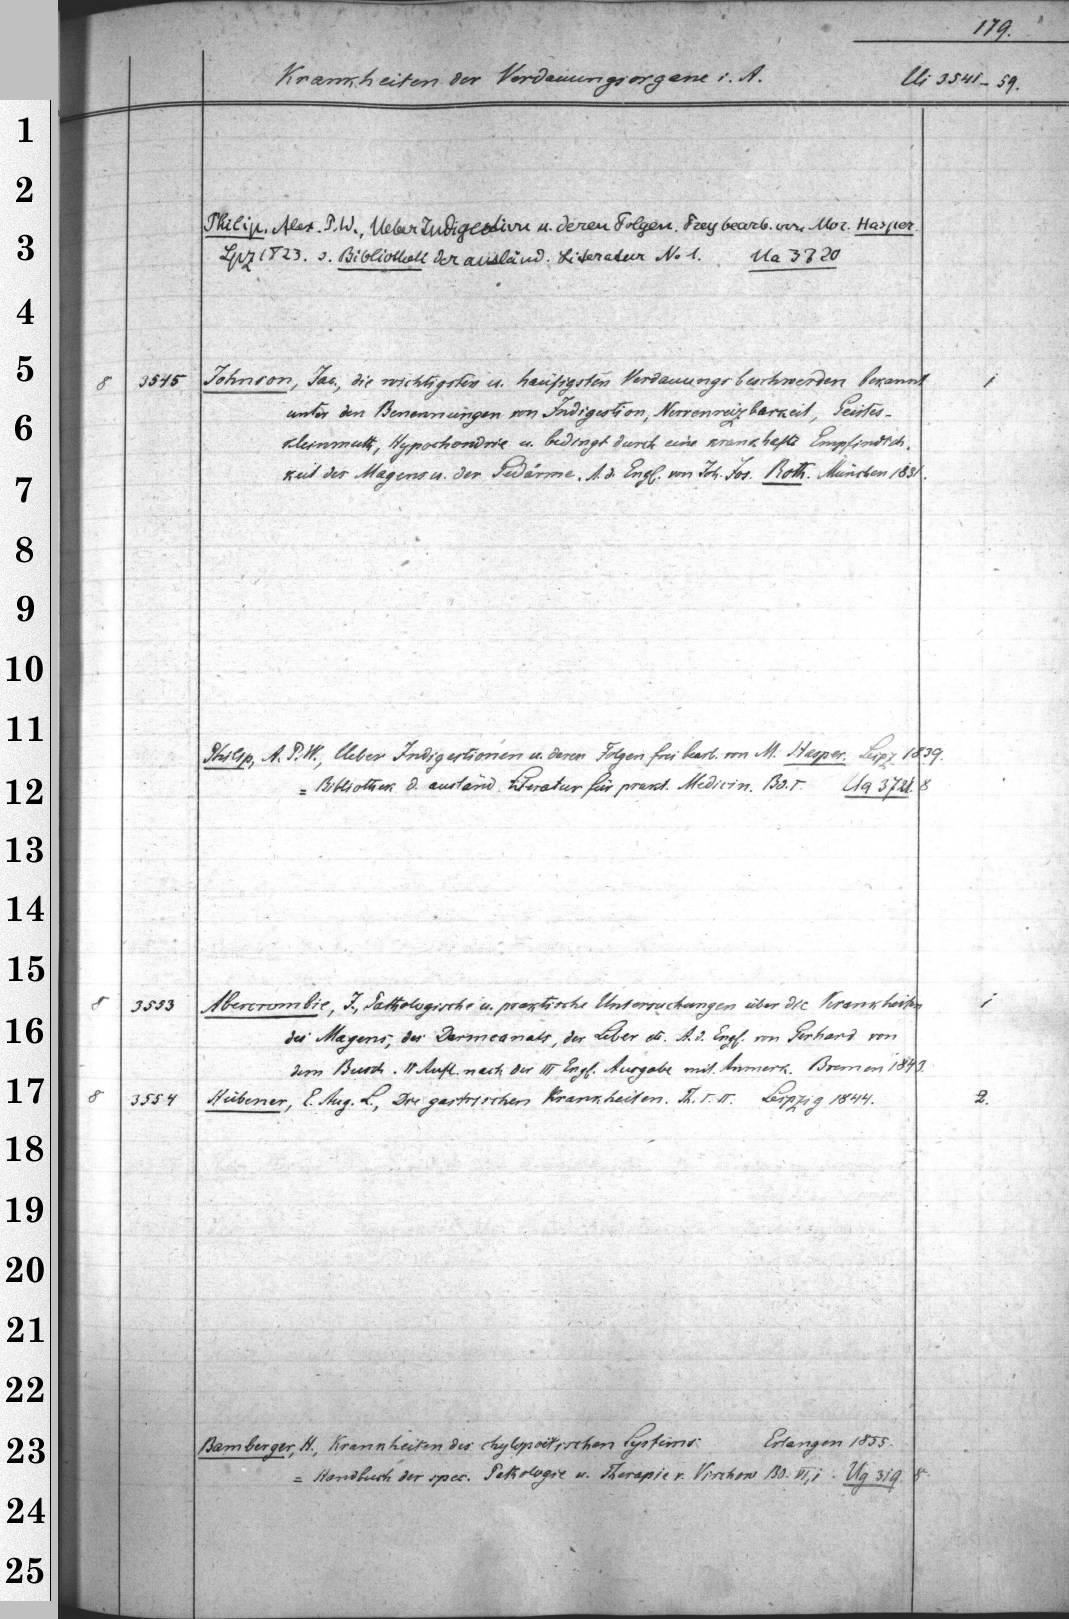 179.
Krankheiten der Verdauungsorgane i. A. Ui 3541-59.
1
2
Philip, Alex. P. W., Ueber Indigestion u. deren Folgen. Frey bearb. von Mor. Hasper.
3
Lpz 1823. s. Bibliothek der ausländ. Literatur No 1. Ua 3720
4
5
8 3545 Johnson, Jac., die wichtigsten u. häufigsten Verdauungsbeschwerden bekannt 1
unter den Benennungen von Indigestion, Nervenreizbarkeit, Geistes-
6
kleinmuth, Hypochondrie u. bedingt durch eine krankhafte Empfindlich.
keit des Magens u. der Gedärme. A. d. Engl. von Joh. Jos. Roth. München 1831.
7
8
9
10
11
Philip, A. P. W., Ueber Indigestionen u. deren Folgen frei bearb. von M. Hasper. Leipz 1839.
12
= Bibliothek d. ausländ. Literatur für prakt. Medicin. Bd. I. Ua 3721. 8
13
14
15
8 3553 Abercrombie, J., Pathologische u. praktische Untersuchungen über die Krankheiten 1
16
des Magens, des Darmcanals, der Leber etc. A. d. Engl. von Gerhard von
dem Busch. II Aufl. nach der III Engl. Ausgabe mit Anmerk. Bremen 1843.
17
8 3554 Hübener, E. Aug. L., Die gastrischen Krankheiten. Th. I. II. Leipzig 1844. 2.
18
19
20
21
22
23
Bamberger, H., Krankheiten des chylopoëtischen Systems. Erlangen 1855.
= Handbuch der spec. Pathologie u. Therapie v. Virchow Bd. VI, 1. Ug 319. 8.
24
25